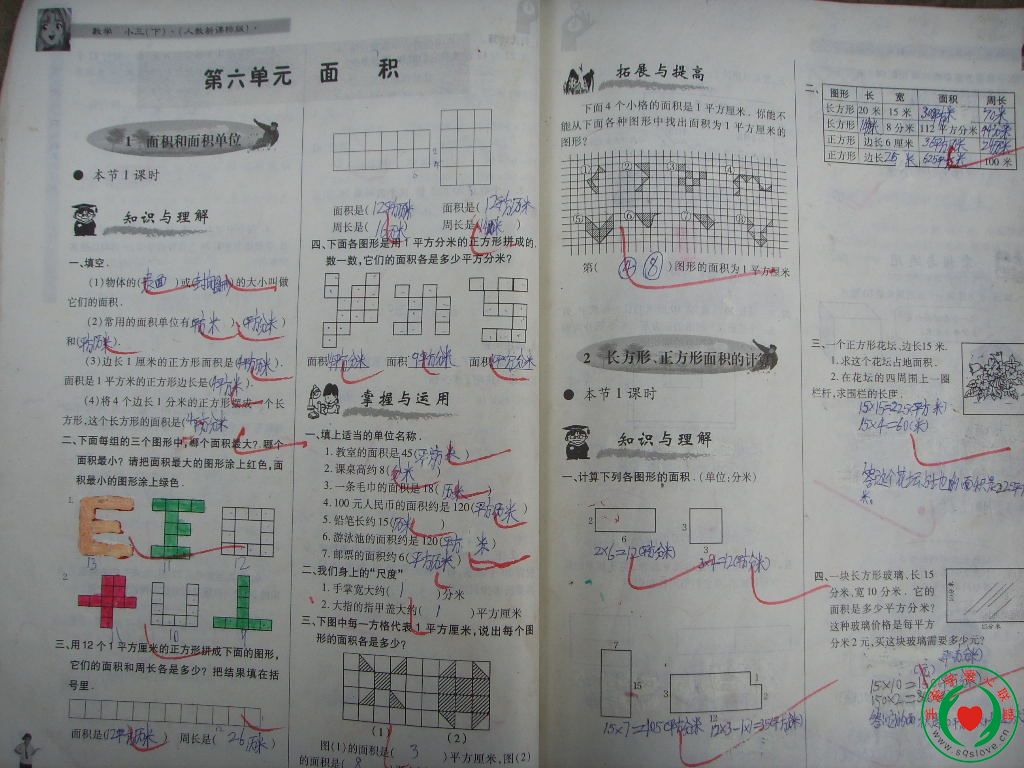 数学 小三(下)·(人教新课标版)·
第六单元 面 积
1 面积和面积单位
● 本节1课时
知识与理解
一、填空.
(1)物体的(表面)或(封闭图形)的大小叫做
它们的面积.
(2)常用的面积单位有( )、(平方分米)
和(平方厘米).
(3)边长1厘米的正方形面积是( ).
面积是1平方米的正方形边长是( ).
(4)将4个边长1分米的正方形摆成一个长
方形,这个长方形的面积是(4平方分米)
二、下面每组的三个图形中,哪个面积最大?哪个
面积最小?请把面积最大的图形涂上红色,面
积最小的图形涂上绿色.
1.
13 11 12
2.
11 10 9
三、用12个1平方厘米的正方形拼成下面的图形,
它们的面积和周长各是多少?把结果填在括
号里.
面积是(12平方厘米) 周长是(26厘米)
面积是(12平方厘米) 面积是(12平方厘米)
周长是(16厘米) 周长是( )
四、下面各图形是用1平方分米的正方形拼成的.
数一数,它们的面积各是多少平方分米?
面积 面积 9平方分米 面积
掌握与运用
一、填上适当的单位名称.
1.教室的面积是45(平方米)
2.课桌高约8(分米)
3.一条毛巾的面积是18( )
4.100元人民币的面积约是120(平方厘米)
5.铅笔长约15(厘米)
6.游泳池的面积约是120(平方 米)
7.邮票的面积约6(平方厘米)
二、我们身上的“尺度”
1.手掌宽大约( 1 )分米
2.大指的指甲盖大约( 1 )平方厘米
三、下图中每一方格代表1平方厘米,说出每个图
形的面积各是多少?
(1) (2)
图(1)的面积是( 3 )平方厘米,图(2)
的面积是( 8
拓展与提高
下面4个小格的面积是1平方厘米.你能不
能从下面各种图形中找出面积为1平方厘米的
图形?
① ② ③ ④
⑤ ⑥ ⑦ ⑧
第( ④ ⑧ )图形的面积为1平方厘米
2 长方形、正方形面积的计算
● 本节1课时
知识与理解
一、计算下列各图形的面积.(单位:分米)
2 6 3 3
2×6=12(平方分米)
7 15 3 1 2 12
15×7=105(平方分米) 12×3-1×1=35(平方分米)
二、
图形 长 宽 面积 周长
长方形 20米 15米 300平方米 70米
长方形 8分米 112平方分米 44分米
正方形 边长6厘米 36平方厘米 24厘米
正方形 边长25米 625平方米 100米
三、一个正方形花坛,边长15米.
1.求这个花坛占地面积.
2.在花坛的四周围上一圈
栏杆,求围栏的长度.
15×15=225(平方米)
15×4=60(米)
答:这个花坛占地的面积是225平方
米
四、一块长方形玻璃,长15
分米,宽10分米.它的
面积是多少平方分米?
这种玻璃价格是每平方
分米2元,买这块玻璃需要多少元?
15分米
15×10=
150×2=
www.sqslove.cn